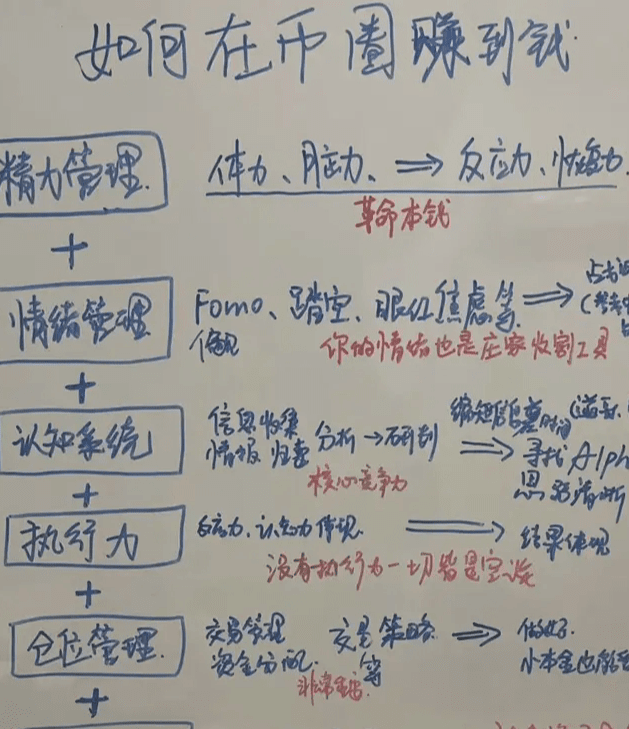 如何在币圈赚到钱
精力管理. 体力、脑力、⇒ 反应力、恢复力.
革命本钱
+
情绪管理 Fomo、踏空、眼红焦虑等. ⇒
偏见 你的情绪也是庄家收割工具
+
信息收集
认知系统 情报 归查 分析→研判 ⇒ 寻找Alph
核心竞争力 思路清晰
+
执行力 反应力、认知力体现. ⇒ 结果体现
没有执行力一切皆是空谈
+
仓位管理. 交易管理 交易策略 ⇒ 做好.
资金分配. 等 小本金也能
非常重要.
+